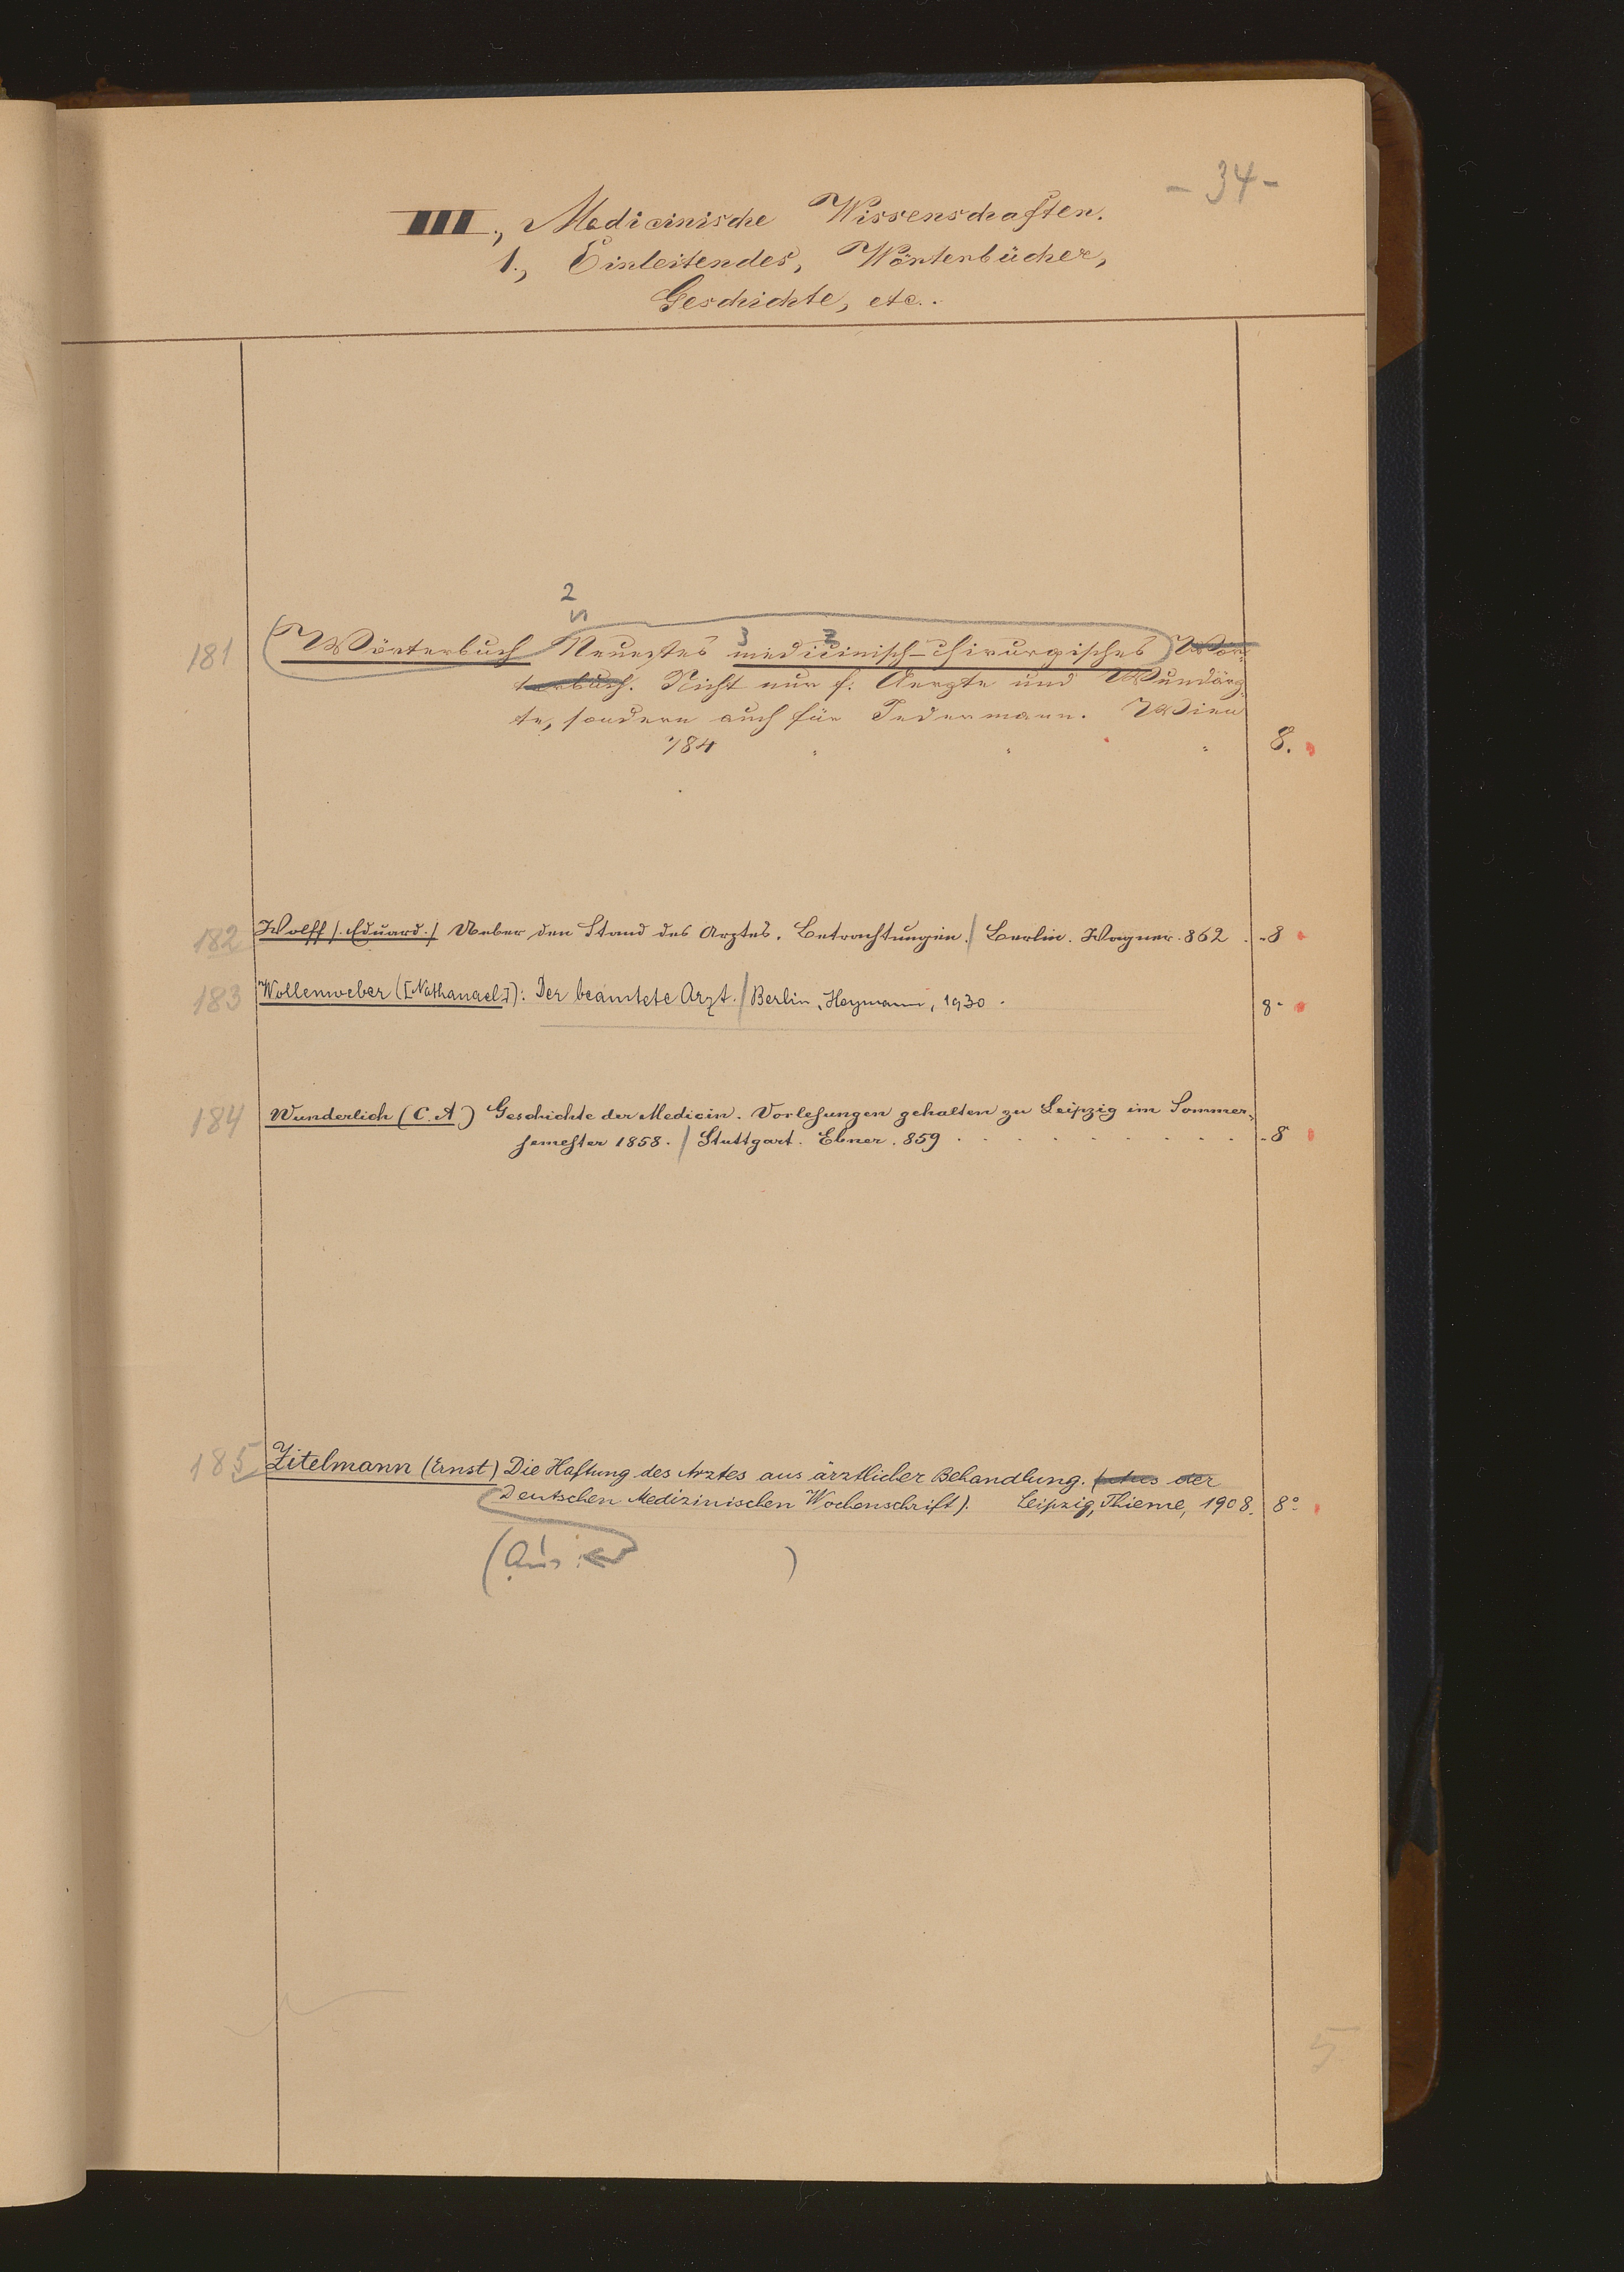 - 34 -
III., Medicinische Wissenschaften.
1., Einleitendes, Wörterbücher,
Geschichte, etc..
2
3 2
181 Wörterbuch Neuestes medicinisch-chirurgisches Wör-
terbuch. Nicht nur f. Aerzte und Wundärz-
te, sondern auch für Jedermann. Wien
784 8.
182 Wolff /. Eduard ./ Ueber den Stand des Arztes. Betrachtungen. / Berlin. Wagner. 862 . - 8
183 Wollenweber ([Nathanael]): Der beamtete Arzt. / Berlin, Heymann, 1930. 8°
184 Wunderlich (C. A.) Geschichte der Medicin. Vorlesungen gehalten zu Leipzig im Sommer-
semester 1858. / Stuttgart. Ebner. 859 . . . . . . . . . - 8
185 Zitelmann (Ernst) Die Haftung des Arztes aus ärztlicher Behandlung. (Aus der
Deutschen Medizinischen Wochenschrift). Leipzig, Thieme, 1908. 8°
(Aus: )
5